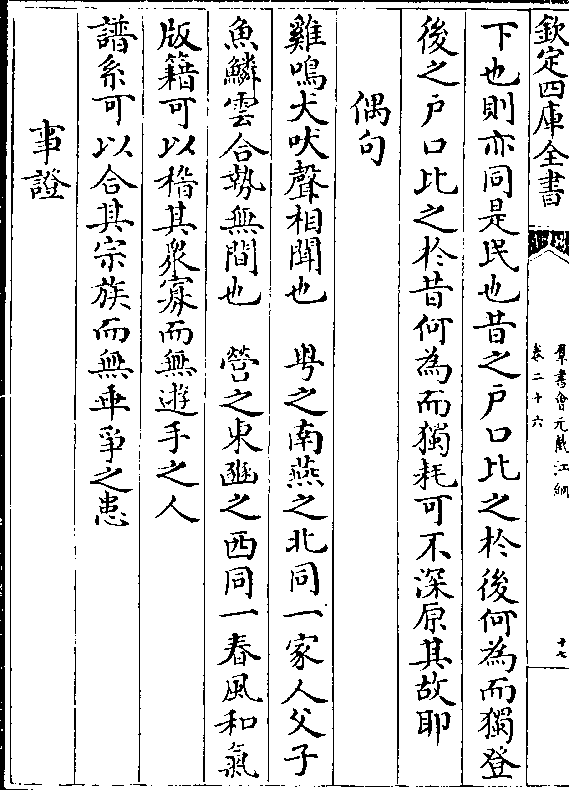 欽定四庫全書
羣書會元截江網
卷二十六
十七
下也則亦同是民也昔之户口比之於後何為而獨登
後之户口比之於昔何為而獨耗可不深原其故耶
偶句
雞鳴犬吠聲相聞也 粤之南燕之北同一家人父子
魚鱗雲合勢無間也 營之東豳之西同一春風和氣
版籍可以稽其衆寡而無遊手之人
譜系可以合其宗族而無乖爭之患
事證